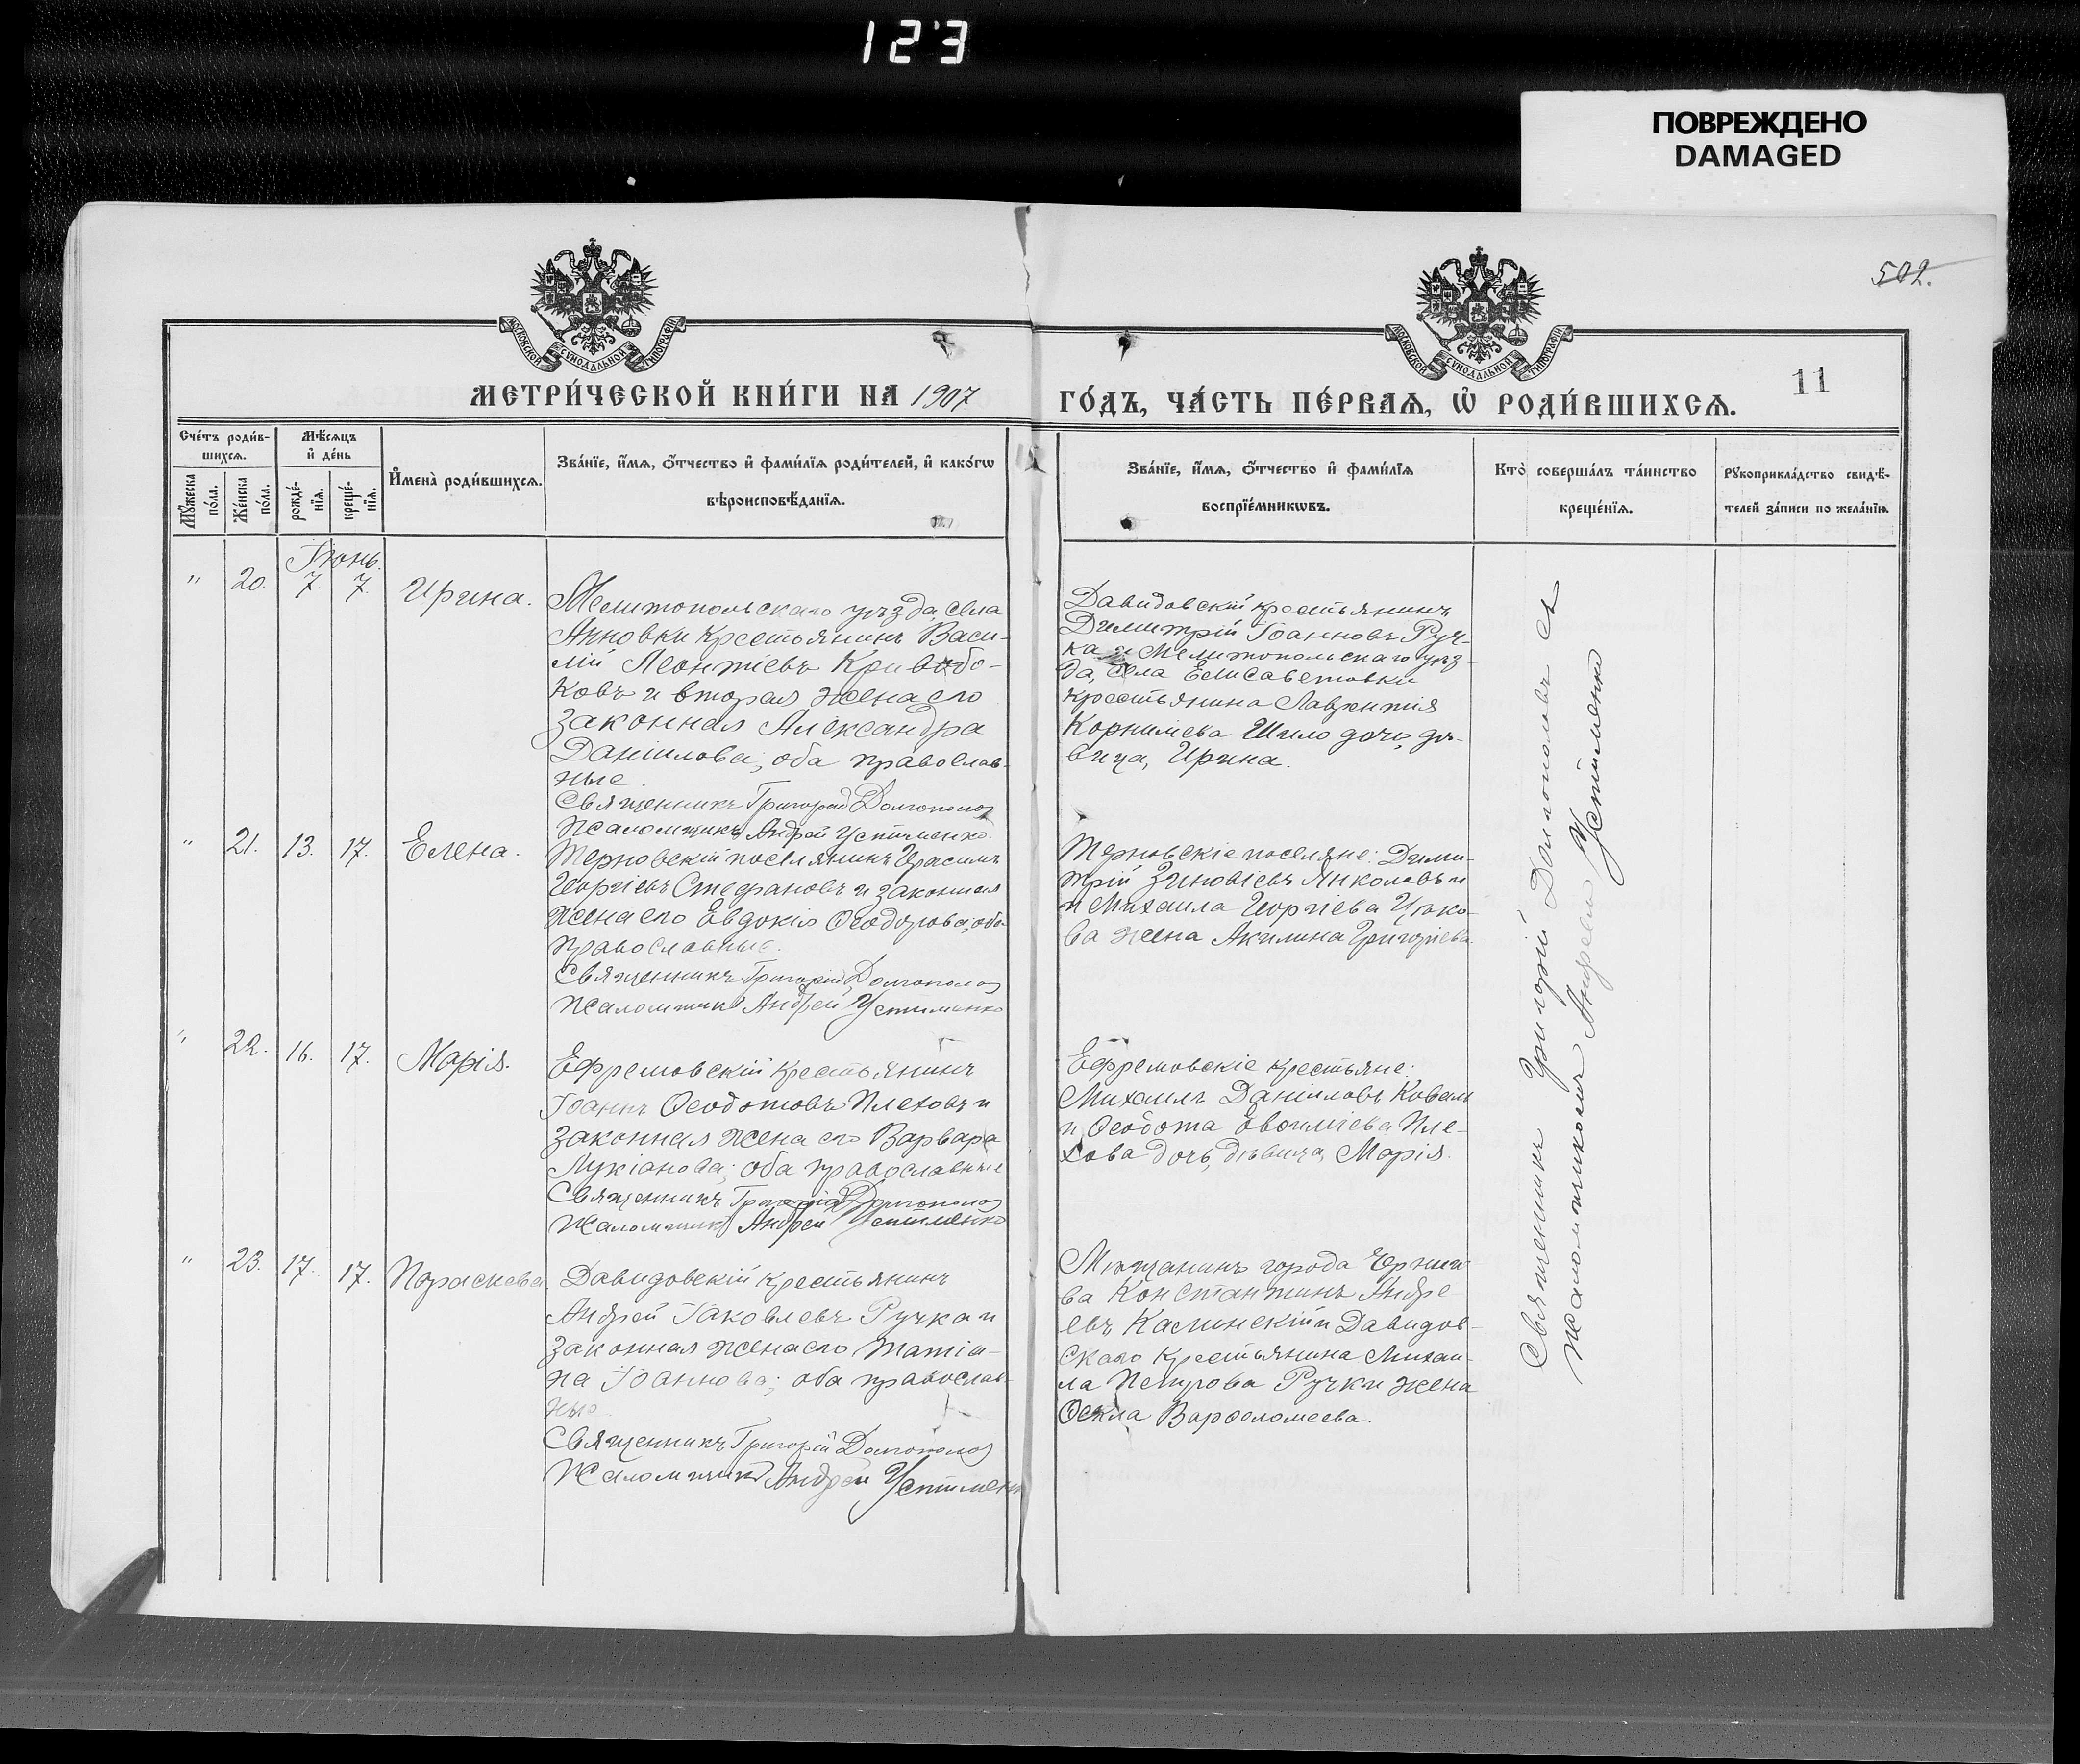 123
ПОВРЕЖДЕНО
DAMAGED
502.
МОСКОВСКОЙ СУНОДАЛЬНОЙ ТИПОГРАФІИ
МОСКОВСКОЙ СУНОДАЛЬНОЙ ТИПОГРАФІИ
МЕТРИ́ЧЕСКОЙ КНИ́ГИ НА 1907
ГО́ДЪ, ЧА́СТЬ ПЕ́РВАѦ, Ѡ҆ РОДИ́ВШИХСѦ.
11
Сче́тъ роди́в-
шихсѧ.
Мꙋ́жеска
по́ла.
Же́нска
по́ла.
Мѣ́сѧцъ
и҆ де́нь
рожде́-
нїѧ.
креще́-
нїѧ.
И҆мена̀ роди́вшихсѧ.
Зва́нїе, и҆́мѧ, ѻ҆́тчество и҆ фами́лїѧ роди́телей, и҆ како́гѡ
вѣроисповѣ́данїѧ.
Зва́нїе, и҆́мѧ, ѻ҆́тчество и҆ фами́лїѧ
воспрїе́мникѡвъ.
Кто̀ соверша́лъ та́инство
креще́нїѧ.
Рꙋкоприкла́дство свидѣ́-
телей за́писи по жела́нїю.
Іюнь.
" 20. 7. 7. Ирина.
Мелитопольскаго уѣзда, села
Анновки крестьянинъ Васи-
лій Леонтіевъ Кривобо-
ковъ и вторая жена его
законная Александра
Даніилова; оба православ-
ные.
Священникъ Григорій Долгополов
Псаломщикъ Андрей Устименко.
Давидовскій крестьянинъ
Димитрій Іоанновъ Руч-
ка и Мелитопольскаго уѣз-
да, села Елисаветовки
крестьянина Лаврентія
Корнилева Шило дочь, дѣ-
вица, Ирина.
" 21. 13. 17. Елена.
Терновскій поселянинъ Герасимъ
Георгіевъ Стефановъ и законная
жена его Евдокія Ѳеодорова; оба
православные.
Священникъ Григорій Долгополов
Псаломщикъ Андрей Устименко
Терновскіе поселяне: Дими-
трій Зиновіевъ Николовъ и
и Михаила Георгіева
ва жена Акилина Григоріева.
" 22. 16. 17. Марія.
Ефремовскій крестьянинъ
Іоаннъ Ѳеодотовъ Плеховъ и
законная жена его Варвара
Лукіанова; оба православные
Священникъ Григорій Долгополов
Псаломщикъ Андрей Устименко
Ефремовскіе крестьяне:
Михаилъ Даніиловъ Коваль
и Ѳеодота Евѳиміева Пле-
хова дочь, дѣвица, Марія.
" 23. 17. 17. Параскева.
Давидовскій крестьянинъ
Андрей Іаковлевъ Ручка и
законная жена его Татіа-
на Іоаннова; оба православ-
ные.
Священникъ Григорій Долгополов
Псаломщикъ Андрей Устименко
Мѣщанинъ города Черниго-
ва Константинъ Андре-
евъ Калинскій и Давидов-
скаго крестьянина Михаи-
ла Петрова Ручки жена
Ѳекла Варѳоломеева.
Священникъ Григорій Долгополовъ съ
псаломщикомъ Андреем Устименко